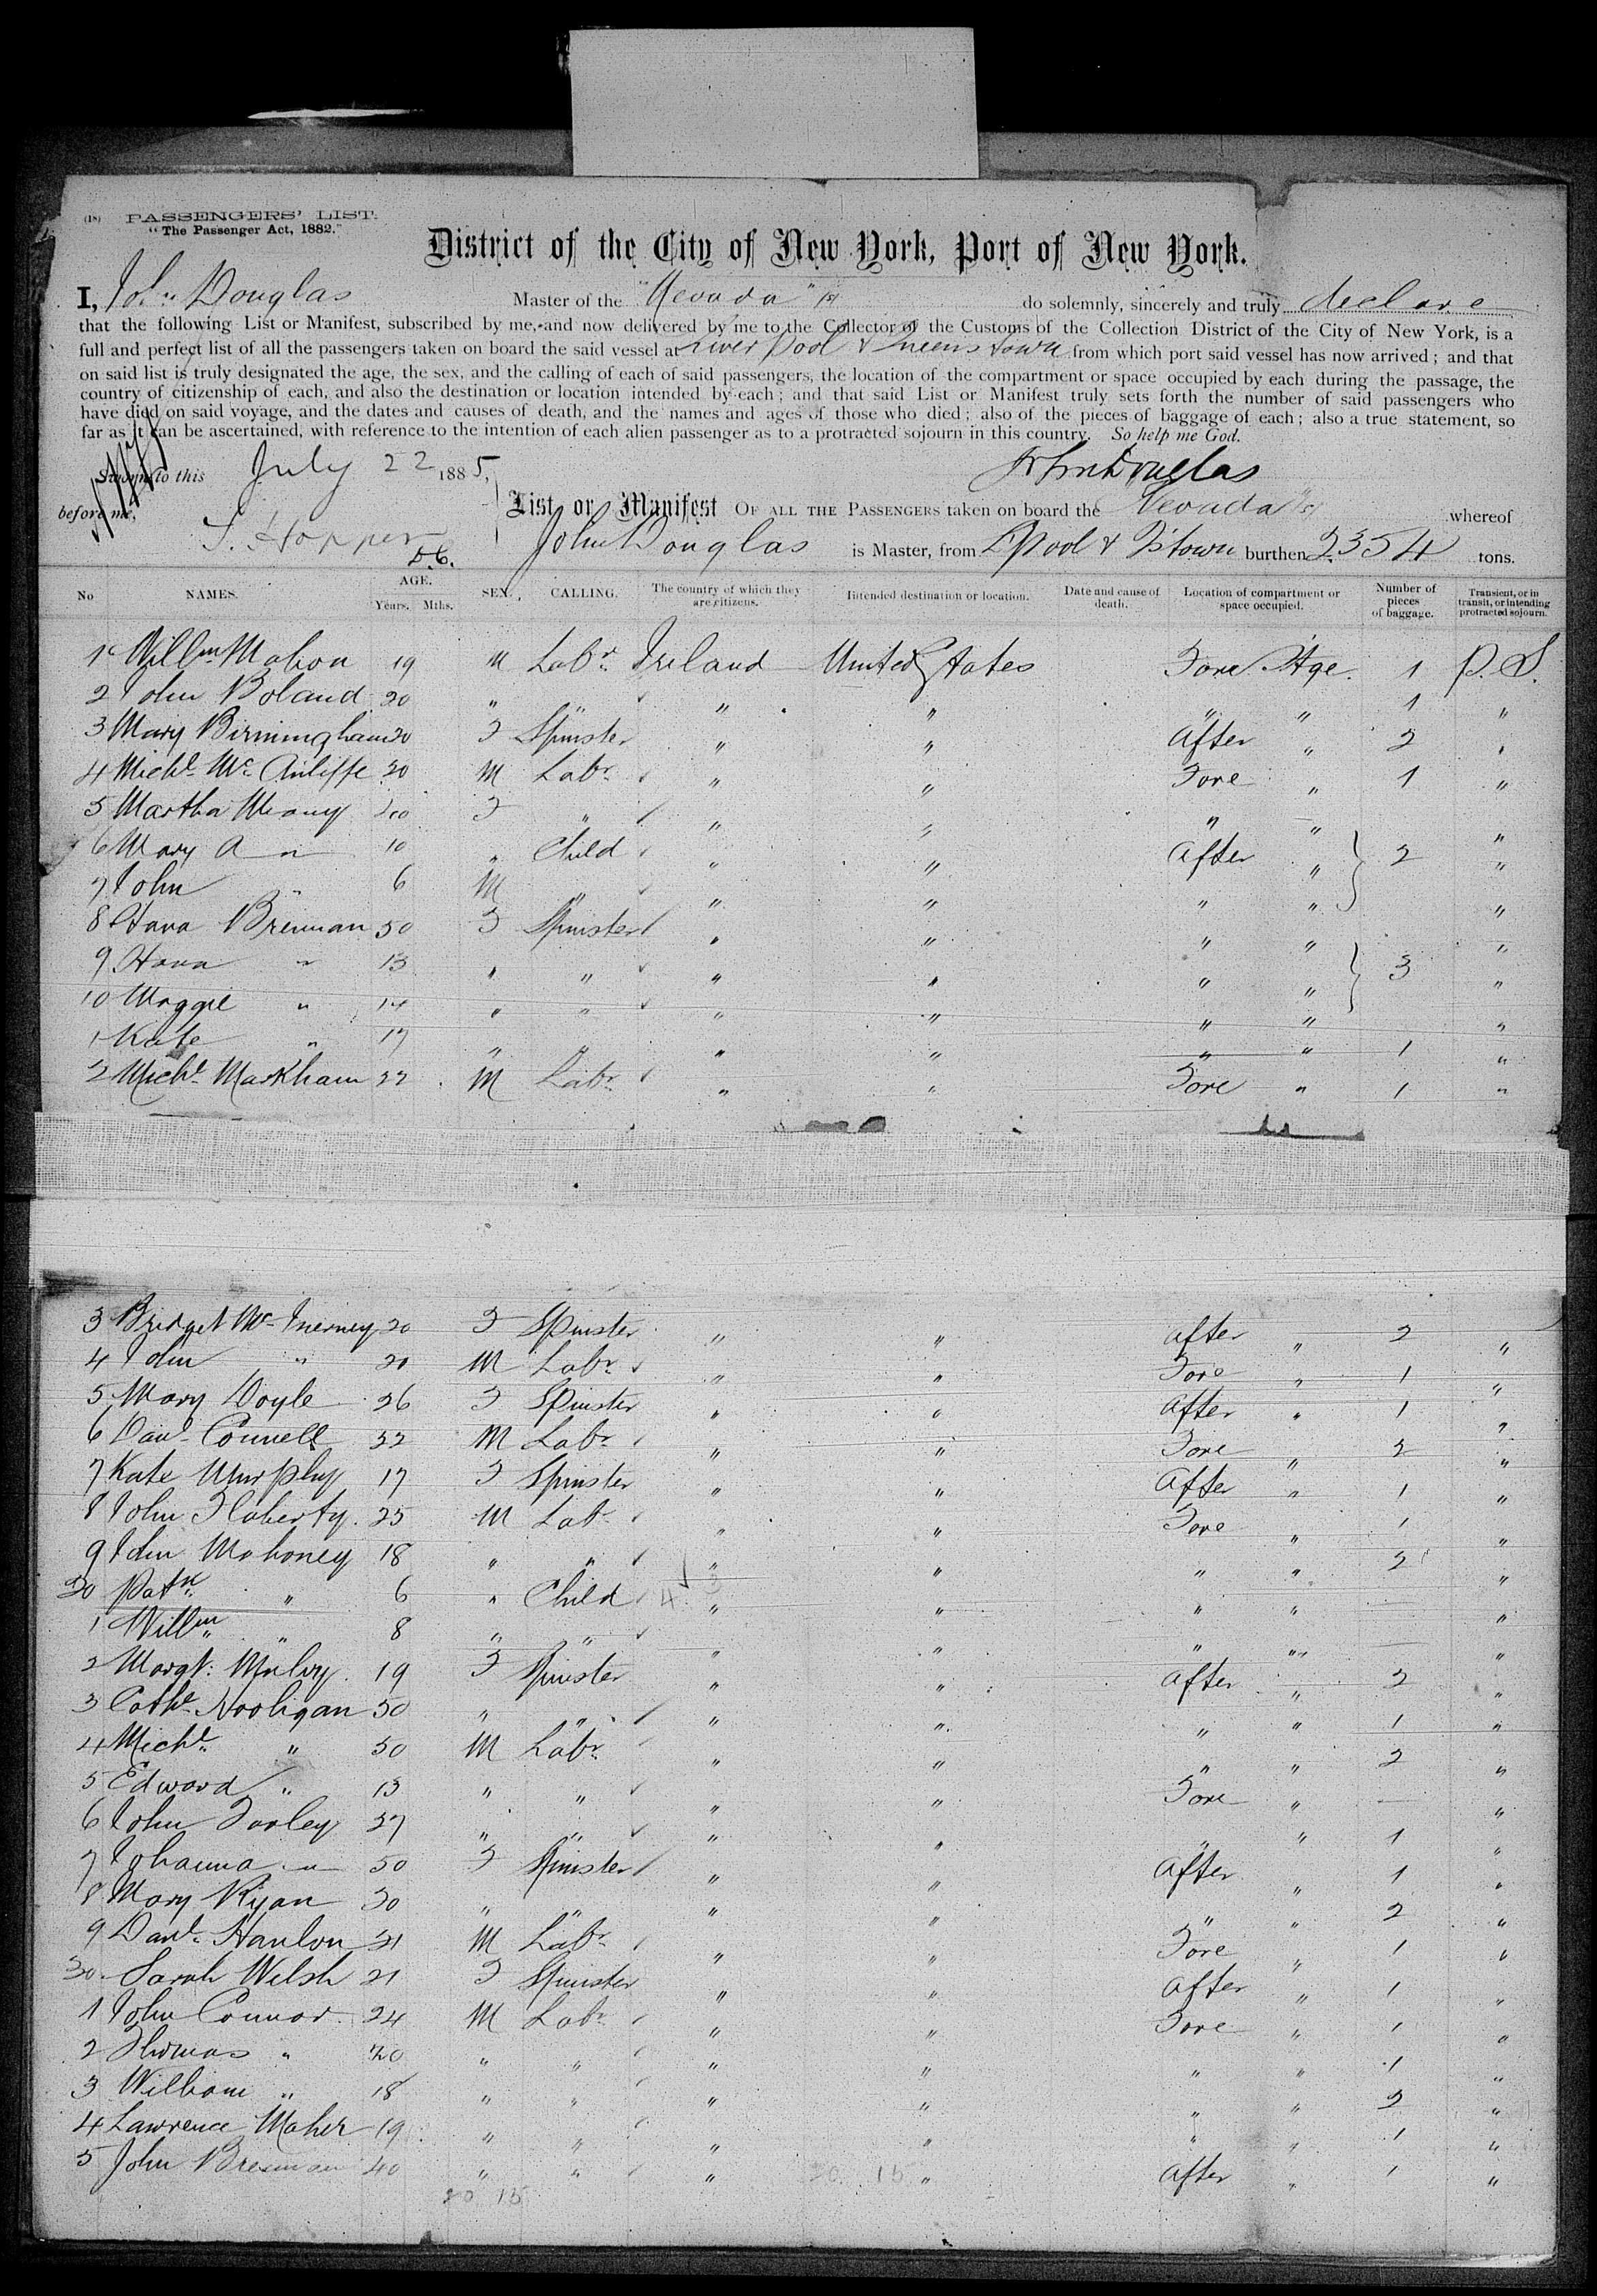 (18) PASSENGERS' LIST.
"The Passenger Act, 1882."
District of the City of New York, Port of New York.
I, John Douglas Master of the "Nevada" do solemnly, sincerely and truly declare
that the following List or Manifest, subscribed by me, and now delivered by me to the Collector of the Customs of the Collection District of the City of New York, is a
full and perfect list of all the passengers taken on board the said vessel at Liverpool & Queenstown from which port said vessel has now arrived; and that
on said list is truly designated the age, the sex, and the calling of each of said passengers, the location of the compartment or space occupied by each during the passage, the
country of citizenship of each, and also the destination or location intended by each; and that said List or Manifest truly sets forth the number of said passengers who
have died on said voyage, and the dates and causes of death, and the names and ages of those who died; also of the pieces of baggage of each; also a true statement, so
far as it can be ascertained, with reference to the intention of each alien passenger as to a protracted sojourn in this country. So help me God.
Sworn to this July 22 1885, John Douglas
before me, S. Hopper D.C.
List or Manifest OF ALL THE PASSENGERS taken on board the Nevada whereof
John Douglas is Master, from L'pool & Q'town burthen 2354 tons.
No NAMES. AGE. Years. Mths. SEX. CALLING. The country of which they are citizens. Intended destination or location. Date and cause of death. Location of compartment or space occupied. Number of pieces of baggage. Transient, or in transit, or intending protracted sojourn.
1 Willm Mahon 19 M Labr Ireland United States Fore Stge. 1 P.S.
2 John Boland 20 " " " " " " 1 "
3 Mary Birmingham 20 F Spinster " " After " 2 "
4 Michl Mc Auliffe 20 M Labr " " Fore " 1 "
5 Martha Meany F " " " " " "
6 Mary A " 10 " Child " " After " 2 "
7 John " 6 M " " " " " "
8 Hana Brennan 50 F Spinster " " " " "
9 Hana " 13 " " " " " " 3 "
10 Maggie " 14 " " " " " " "
1 Kate " 17 " " " " " " 1 "
2 Michl Markham 22 M Labr " " Fore " 1 "
3 Bridget Mc Inerney 20 F Spinster " " After " 2 "
4 John " 20 M Labr " " Fore " 1 "
5 Mary Doyle 26 F Spinster " " After " 1 "
6 Danl Connell 22 M Labr " " Fore " 2 "
7 Kate Murphy 17 F Spinster " " After " 1 "
8 John Flaherty 25 M Labr " " Fore " 1 "
9 John Mahoney 18 " " " " " " 2 "
20 Patk " 6 " Child " " " " "
1 Willm " 8 " " " " " " — "
2 Margt 19 F Spinster " " After " 2 "
3 Cathe 50 " " " " " " 1 "
4 Michl " 50 M Labr " " " " 2 "
5 Edward " 13 " " " " Fore " — "
6 John 27 " " " " " " 1 "
7 Johanna " 50 F Spinster " " After " 1 "
8 Mary Ryan 30 " " " " " " 2 "
9 Danl Hanlon 21 M Labr " " Fore " 1 "
30 Sarah Welsh 21 F Spinster " " After " 1 "
1 John Connor 24 M Labr " " Fore " 1 "
2 Thomas " 20 " " " " " " 1 "
3 William " 18 " " " " " " 2 "
4 Lawrence Maher 19 " " " " " " 1 "
5 John Brennan 40 " " " " After " 1 "
20 15 20 15